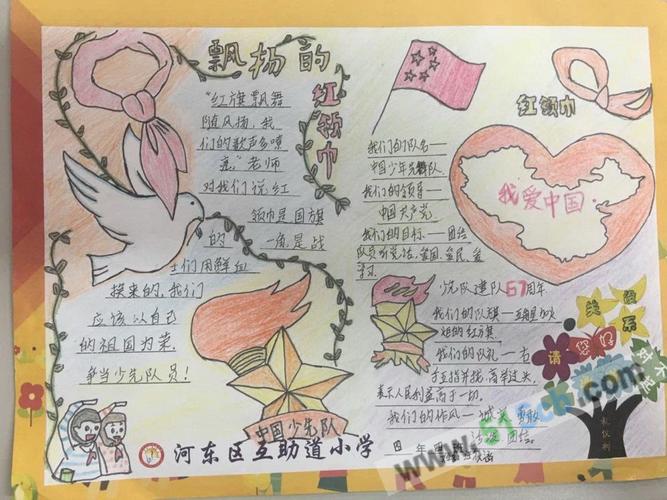 飘扬的
红领巾
"红旗飘舞
随风扬,我
们的歌声多嘹
亮"老师
对我们说红
领巾是国旗
的一角是战
士们用鲜血
换来的,我们
应该以自己
的祖国为荣,
争当少先队员!
中国少先队
河东区互助道小学
红领巾
我们的队名——
中国少年先锋队
我们的领导——
中国共产党
我们的目标——团结
队员
我爱中国
少先队建队67周年
我们的队旗——
的红旗
我们的队礼——右
手五指并拢,高举过头,
表示人民利益高于一切。
我们的作风——诚实 勇敢
活泼 团结。
四年
请
您好
没关系
对不起